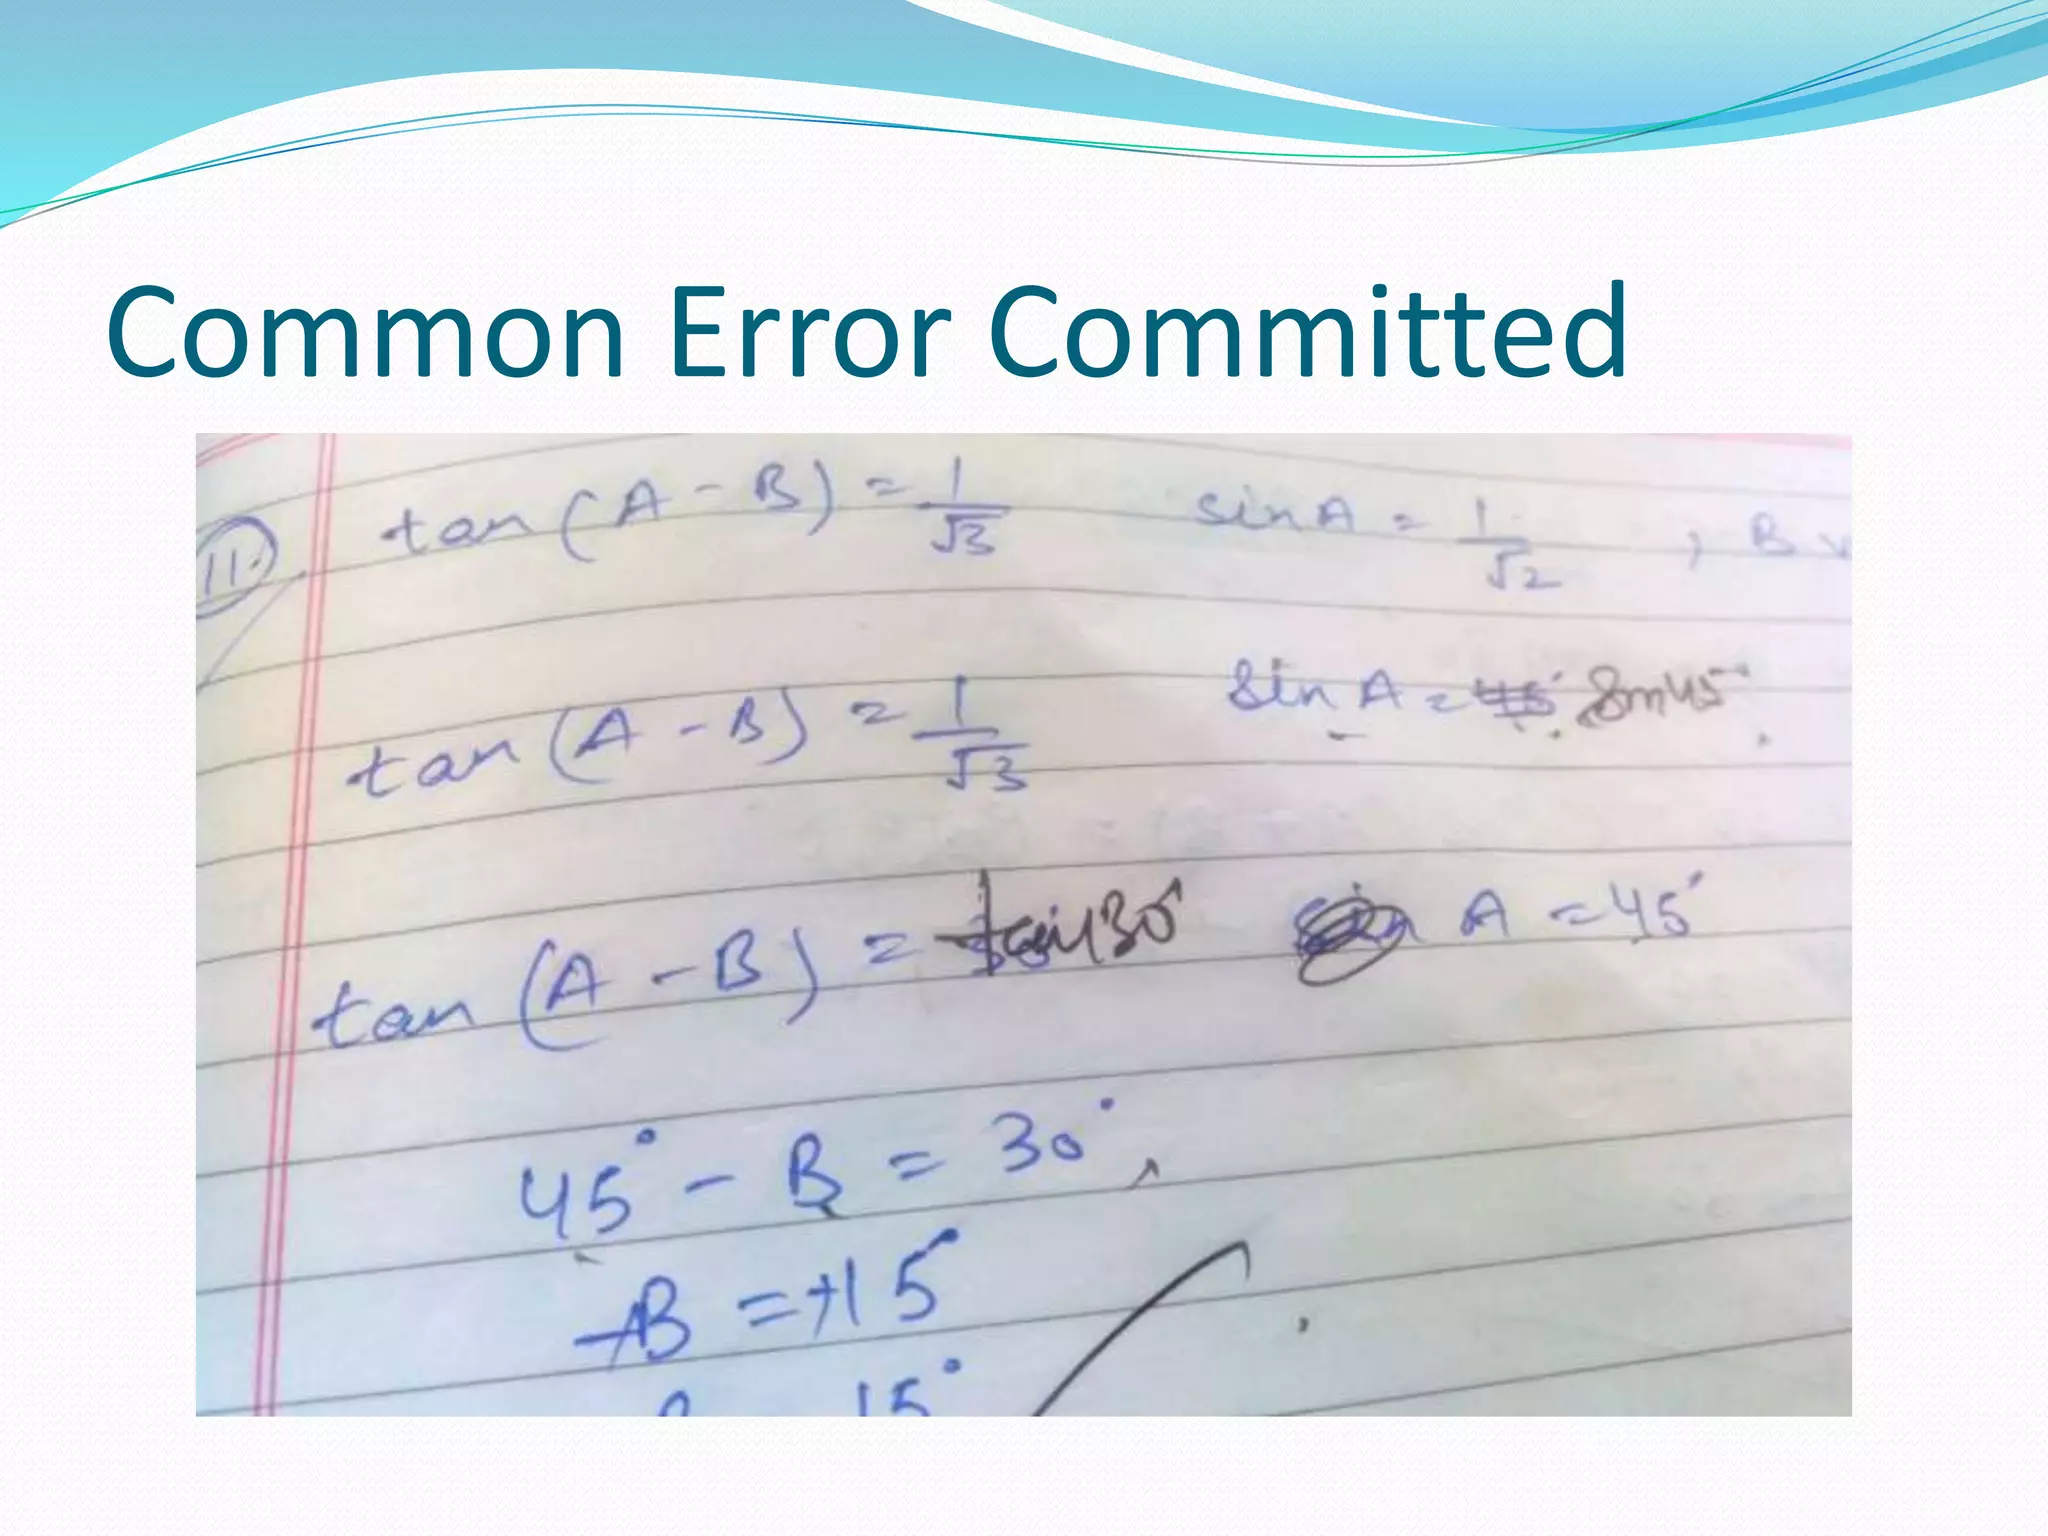 Common Error Committed
11. tan (A - B) = 1/√3 sin A = 1/√2 , B
tan (A - B) = 1/√3 sin A = 45° Sin 45°
tan (A - B) = tan 30° A = 45°
45° - B = 30°
-B = +15°
15°